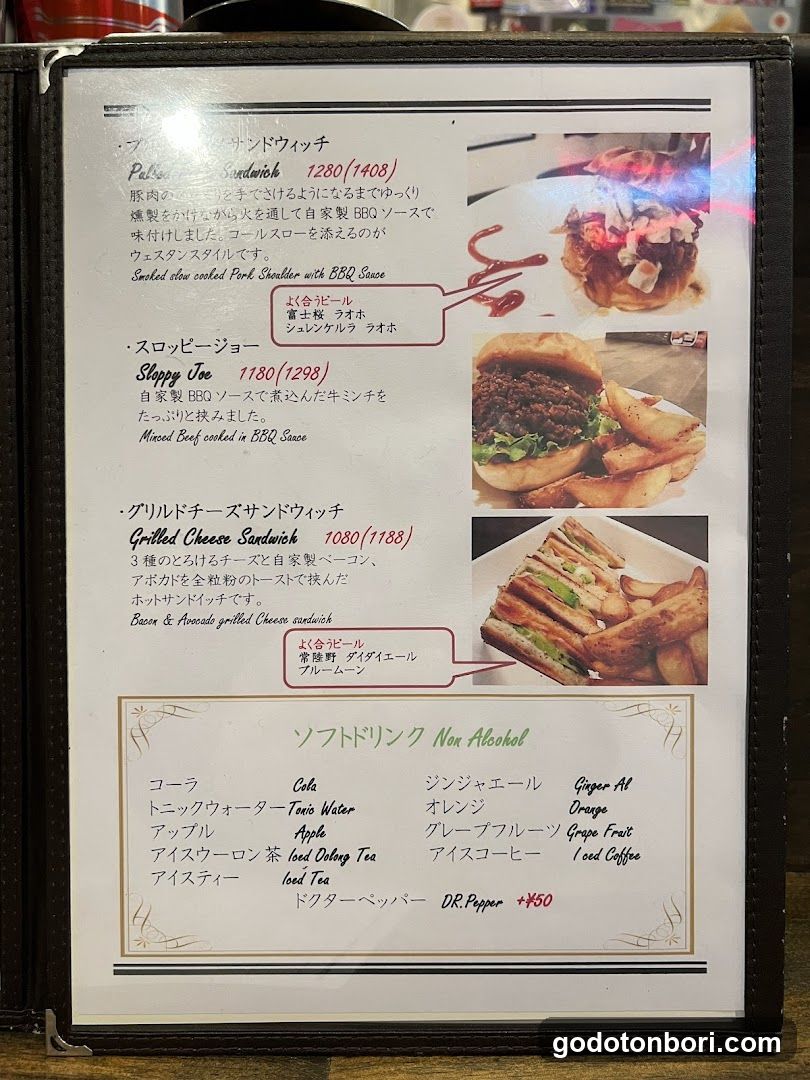 サンドウィッチ
Sandwich 1280(1408)
豚肉の を手でさけるようになるまでゆっくり
燻製をかけながら火を通して自家製BBQソースで
味付けしました。コールスローを添えるのが
ウェスタンスタイルです。
Smoked slow cooked Pork Shoulder with BBQ Sauce
よく合うビール
富士桜 ラオホ
シュレンケルラ ラオホ
・スロッピージョー
Sloppy Joe 1180(1298)
自家製BBQソースで煮込んだ牛ミンチを
たっぷりと挟みました。
Minced Beef cooked in BBQ Sauce
・グリルドチーズサンドウィッチ
Grilled Cheese Sandwich 1080(1188)
3種のとろけるチーズと自家製ベーコン、
アボカドを全粒粉のトーストで挟んだ
ホットサンドイッチです。
Bacon & Avocado grilled Cheese sandwich
よく合うビール
常陸野 ダイダイエール
ブルームーン
ソフトドリンク Non Alcohol
コーラ Cola ジンジャエール Ginger Al
トニックウォーター Tonic Water オレンジ Orange
アップル Apple グレープフルーツ Grape Fruit
アイスウーロン茶 Iced Oolong Tea アイスコーヒー Iced Coffee
アイスティー Iced Tea
ドクターペッパー DR.Pepper +¥50
godotonbori.com